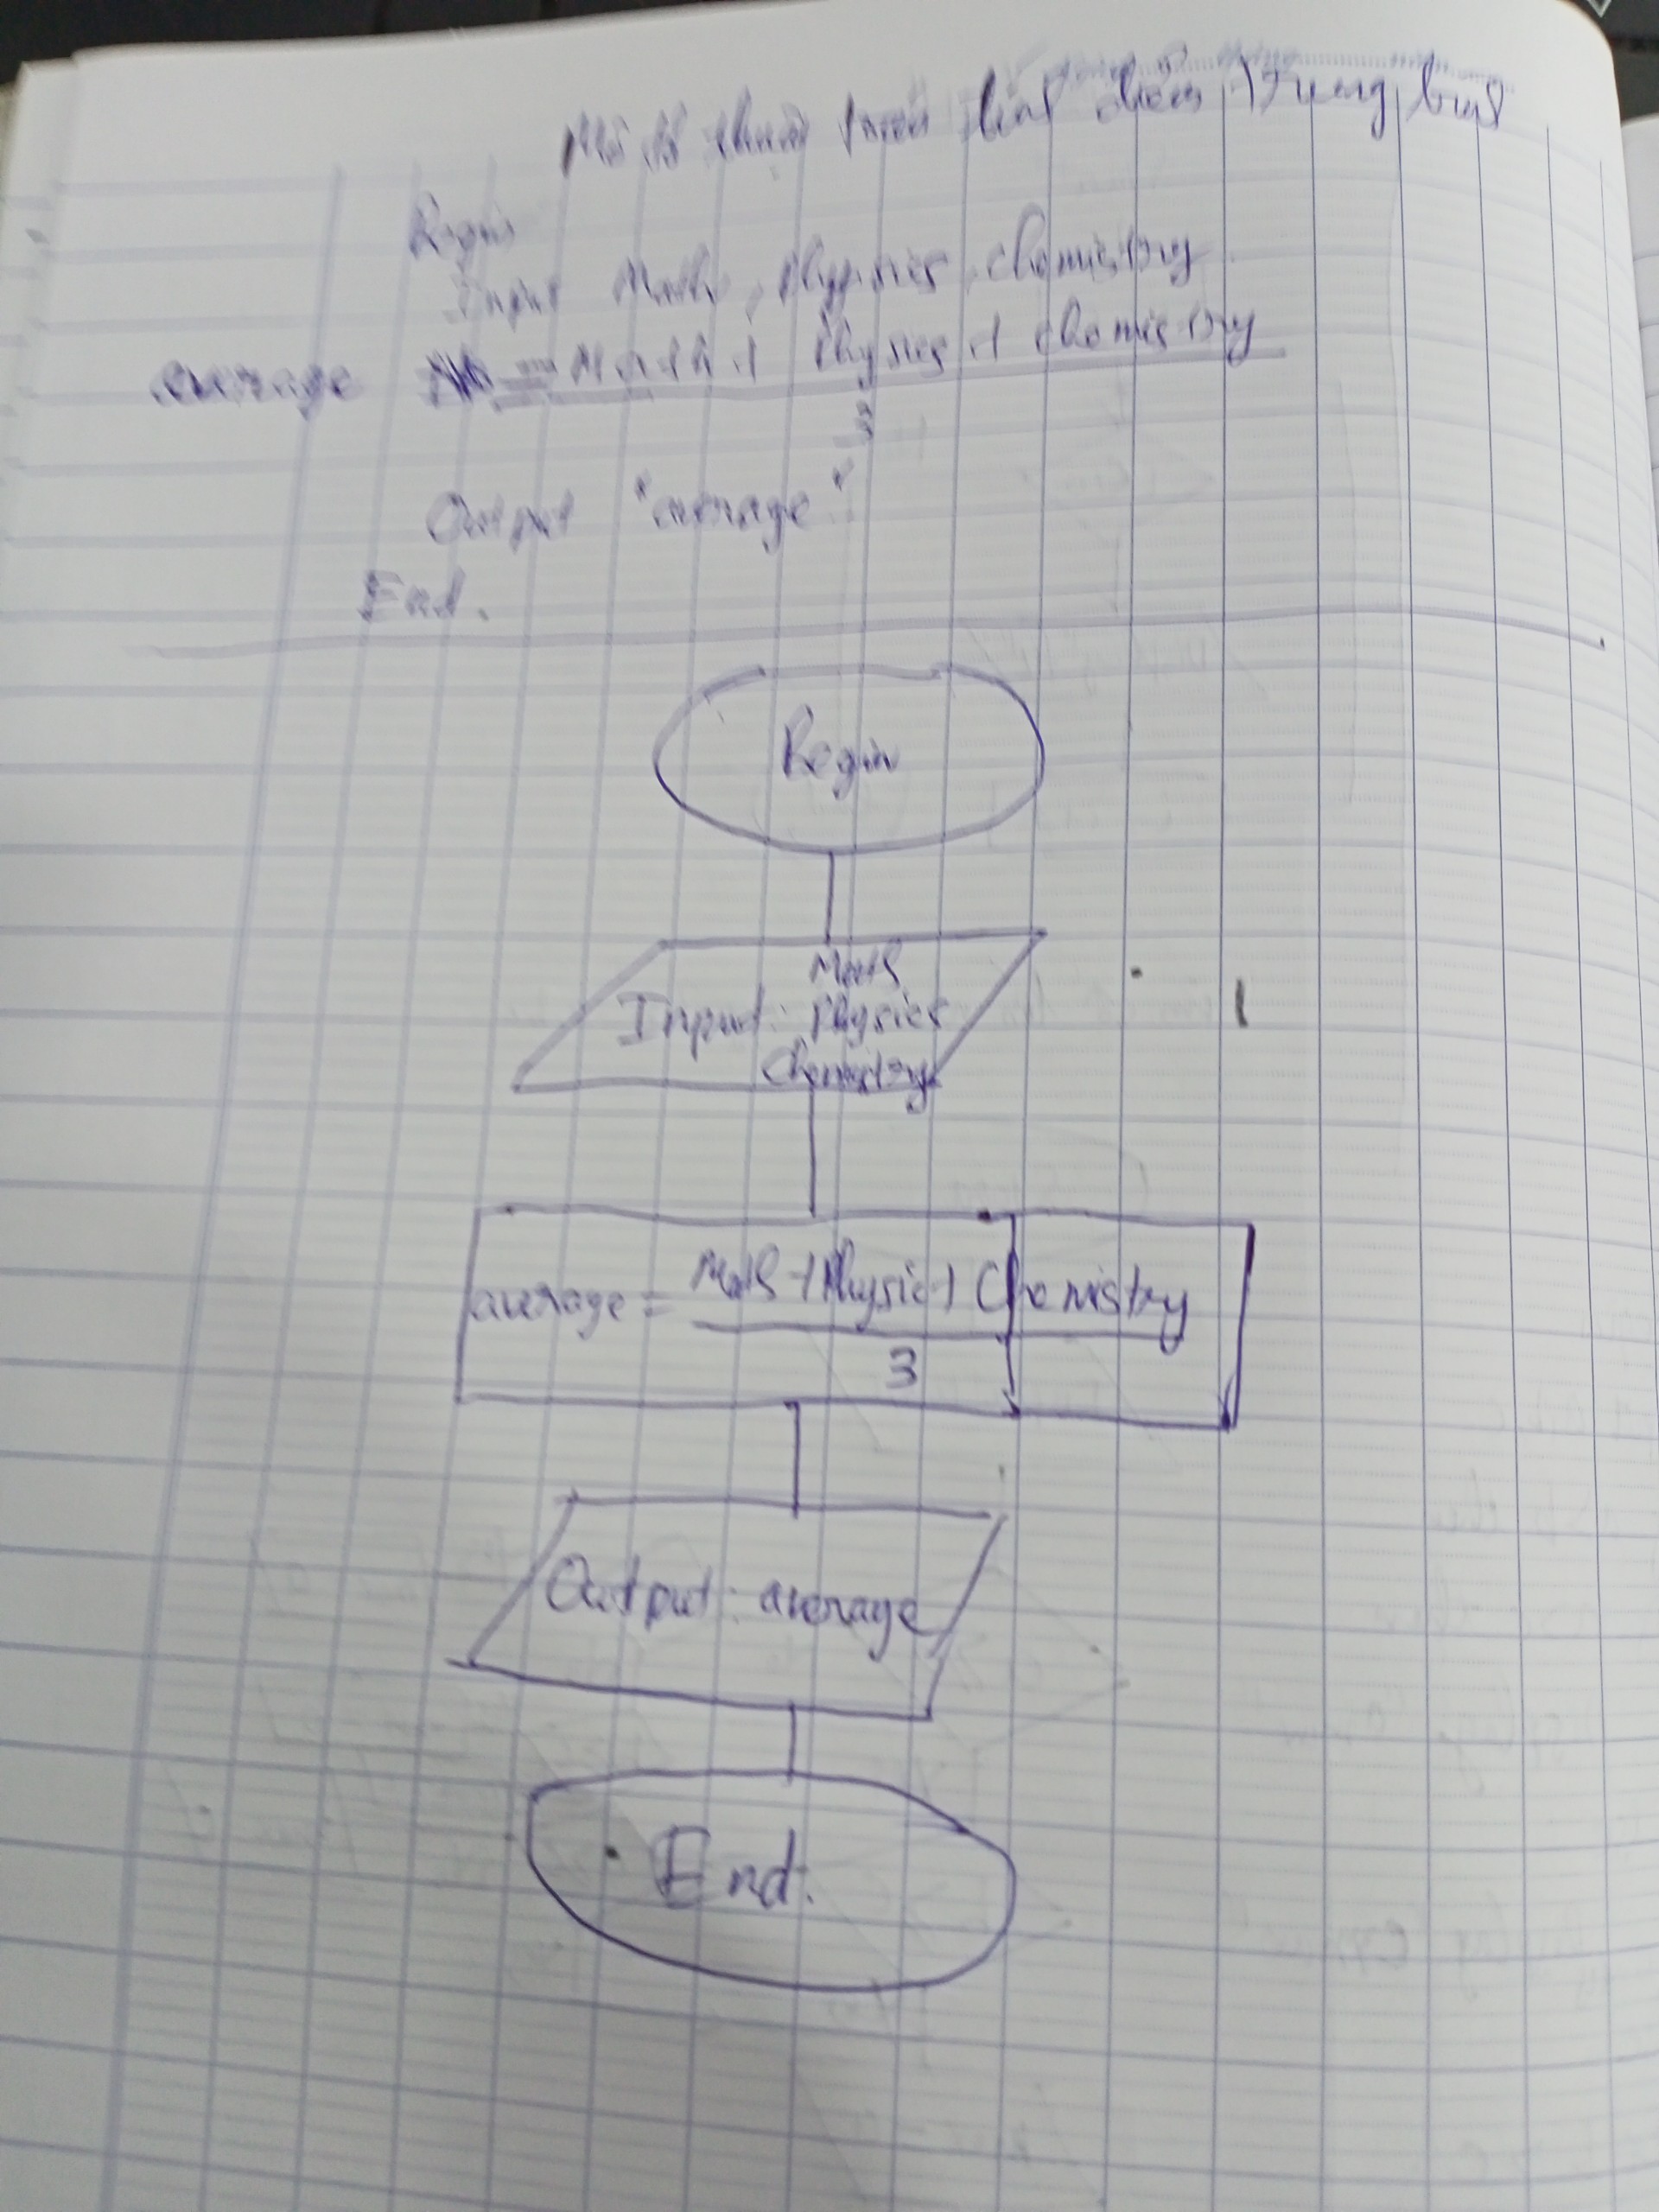 Mô tả thuật toán tính điểm trung bình
Begin
Input Math, Physics, Chemistry
average = Math + Physics + Chemistry
3
Output "average"
End.
Begin
Math
Input: Physics
Chemistry
average = Math + Physic + Chemistry
3
Output: average
End.